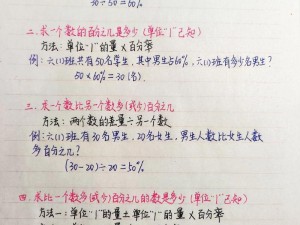 30÷50=60%
二、求一个数的百分之几是多少(单位"1"已知)
方法:单位"1"的量×百分率
例:六(1)班共有50名学生,其中男生占60%,六(1)班有多少名男生?
50×60%=30(名)
三、求一个数比另一个数多(或少)百分之几
方法:两个数的差量÷另一个数
例:六(1)班有30名男生,20名女生,男生人数比女生人数
多百分之几?
(30-20)÷20=50%
四、求比一个数多(或少)百分之几的数是多少(单位"1"已知)
方法一:单位"1"的量±单位"1"的量×百分率